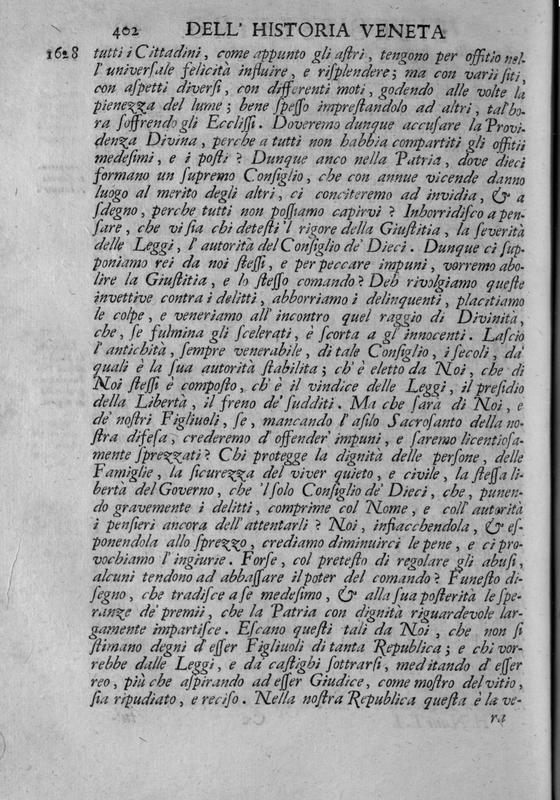 402 DELL' HISTORIA VENETA
1628 tutti i Cittadini, come appunto gli astri, tengono per offitio nel-
l' universale felicità influire, e risplendere; ma con varii siti,
con aspetti diversi, con differenti moti, godendo alle volte la
pienezza del lume; bene spesso imprestandolo ad altri, tal'ho-
ra soffrendo gli Ecclissi. Doveremo dunque accusare la Provi-
denza Divina, perche a tutti non habbia compartiti gli offitii
medesimi, e i posti? Dunque anco nella Patria, dove dieci
formano un supremo Consiglio, che con annue vicende danno
luogo al merito degli altri, ci conciteremo ad invidia, & a
sdegno, perche tutti non possiamo capirvi? Inhorridisco a pen-
sare, che vi sia chi detesti 'l rigore della Giustitia, la severità
delle Leggi, l' autorità del Consiglio de' Dieci. Dunque ci sup-
poniamo rei da noi stessi, e per peccare impuni, vorremo abo-
lire la Giustitia, e lo stesso comando? Deh rivolgiamo queste
invettive contra i delitti, abborriamo i delinquenti, placitiamo
le colpe, e veneriamo all' incontro quel raggio di Divinità,
che, se fulmina gli scelerati, è scorta a gl' innocenti. Lascio
l' antichità, sempre venerabile, di tale Consiglio, i secoli, da'
quali è la sua autorità stabilita; ch' è eletto da Noi, che di
Noi stessi è composto, ch' è il vindice delle Leggi, il presidio
della Libertà, il freno de' sudditi. Ma che sarà di Noi, e
de' nostri Figliuoli, se, mancando l' asilo Sacrosanto della no-
stra difesa, crederemo d' offender' impuni, e saremo licentiosa-
mente sprezzati? Chi protegge la dignità delle persone, delle
Famiglie, la sicurezza del viver quieto, e civile, la stessa li-
bertà del Governo, che 'l solo Consiglio de' Dieci, che, punen-
do gravemente i delitti, comprime col Nome, e coll' autorità
i pensieri ancora dell' attentarli? Noi, infiacchendola, & es-
ponendola allo sprezzo, crediamo diminuirci le pene, e ci pro-
vochiamo l' ingiurie. Forse, col pretesto di regolare gli abusi,
alcuni tendono ad abbassare il poter del comando? Funesto di-
segno, che tradisce a se medesimo, & alla sua posterità le spe-
ranze de' premii, che la Patria con dignità riguardevole lar-
gamente impartisce. Escano questi tali da Noi, che non si
stimano degni d' esser Figliuoli di tanta Republica; e chi vor-
rebbe dalle Leggi, e da' castighi sottrarsi, meditando d' esser
reo, più che aspirando ad esser Giudice, come mostro del vitio,
sia ripudiato, e reciso. Nella nostra Republica questa è la ve-
ra